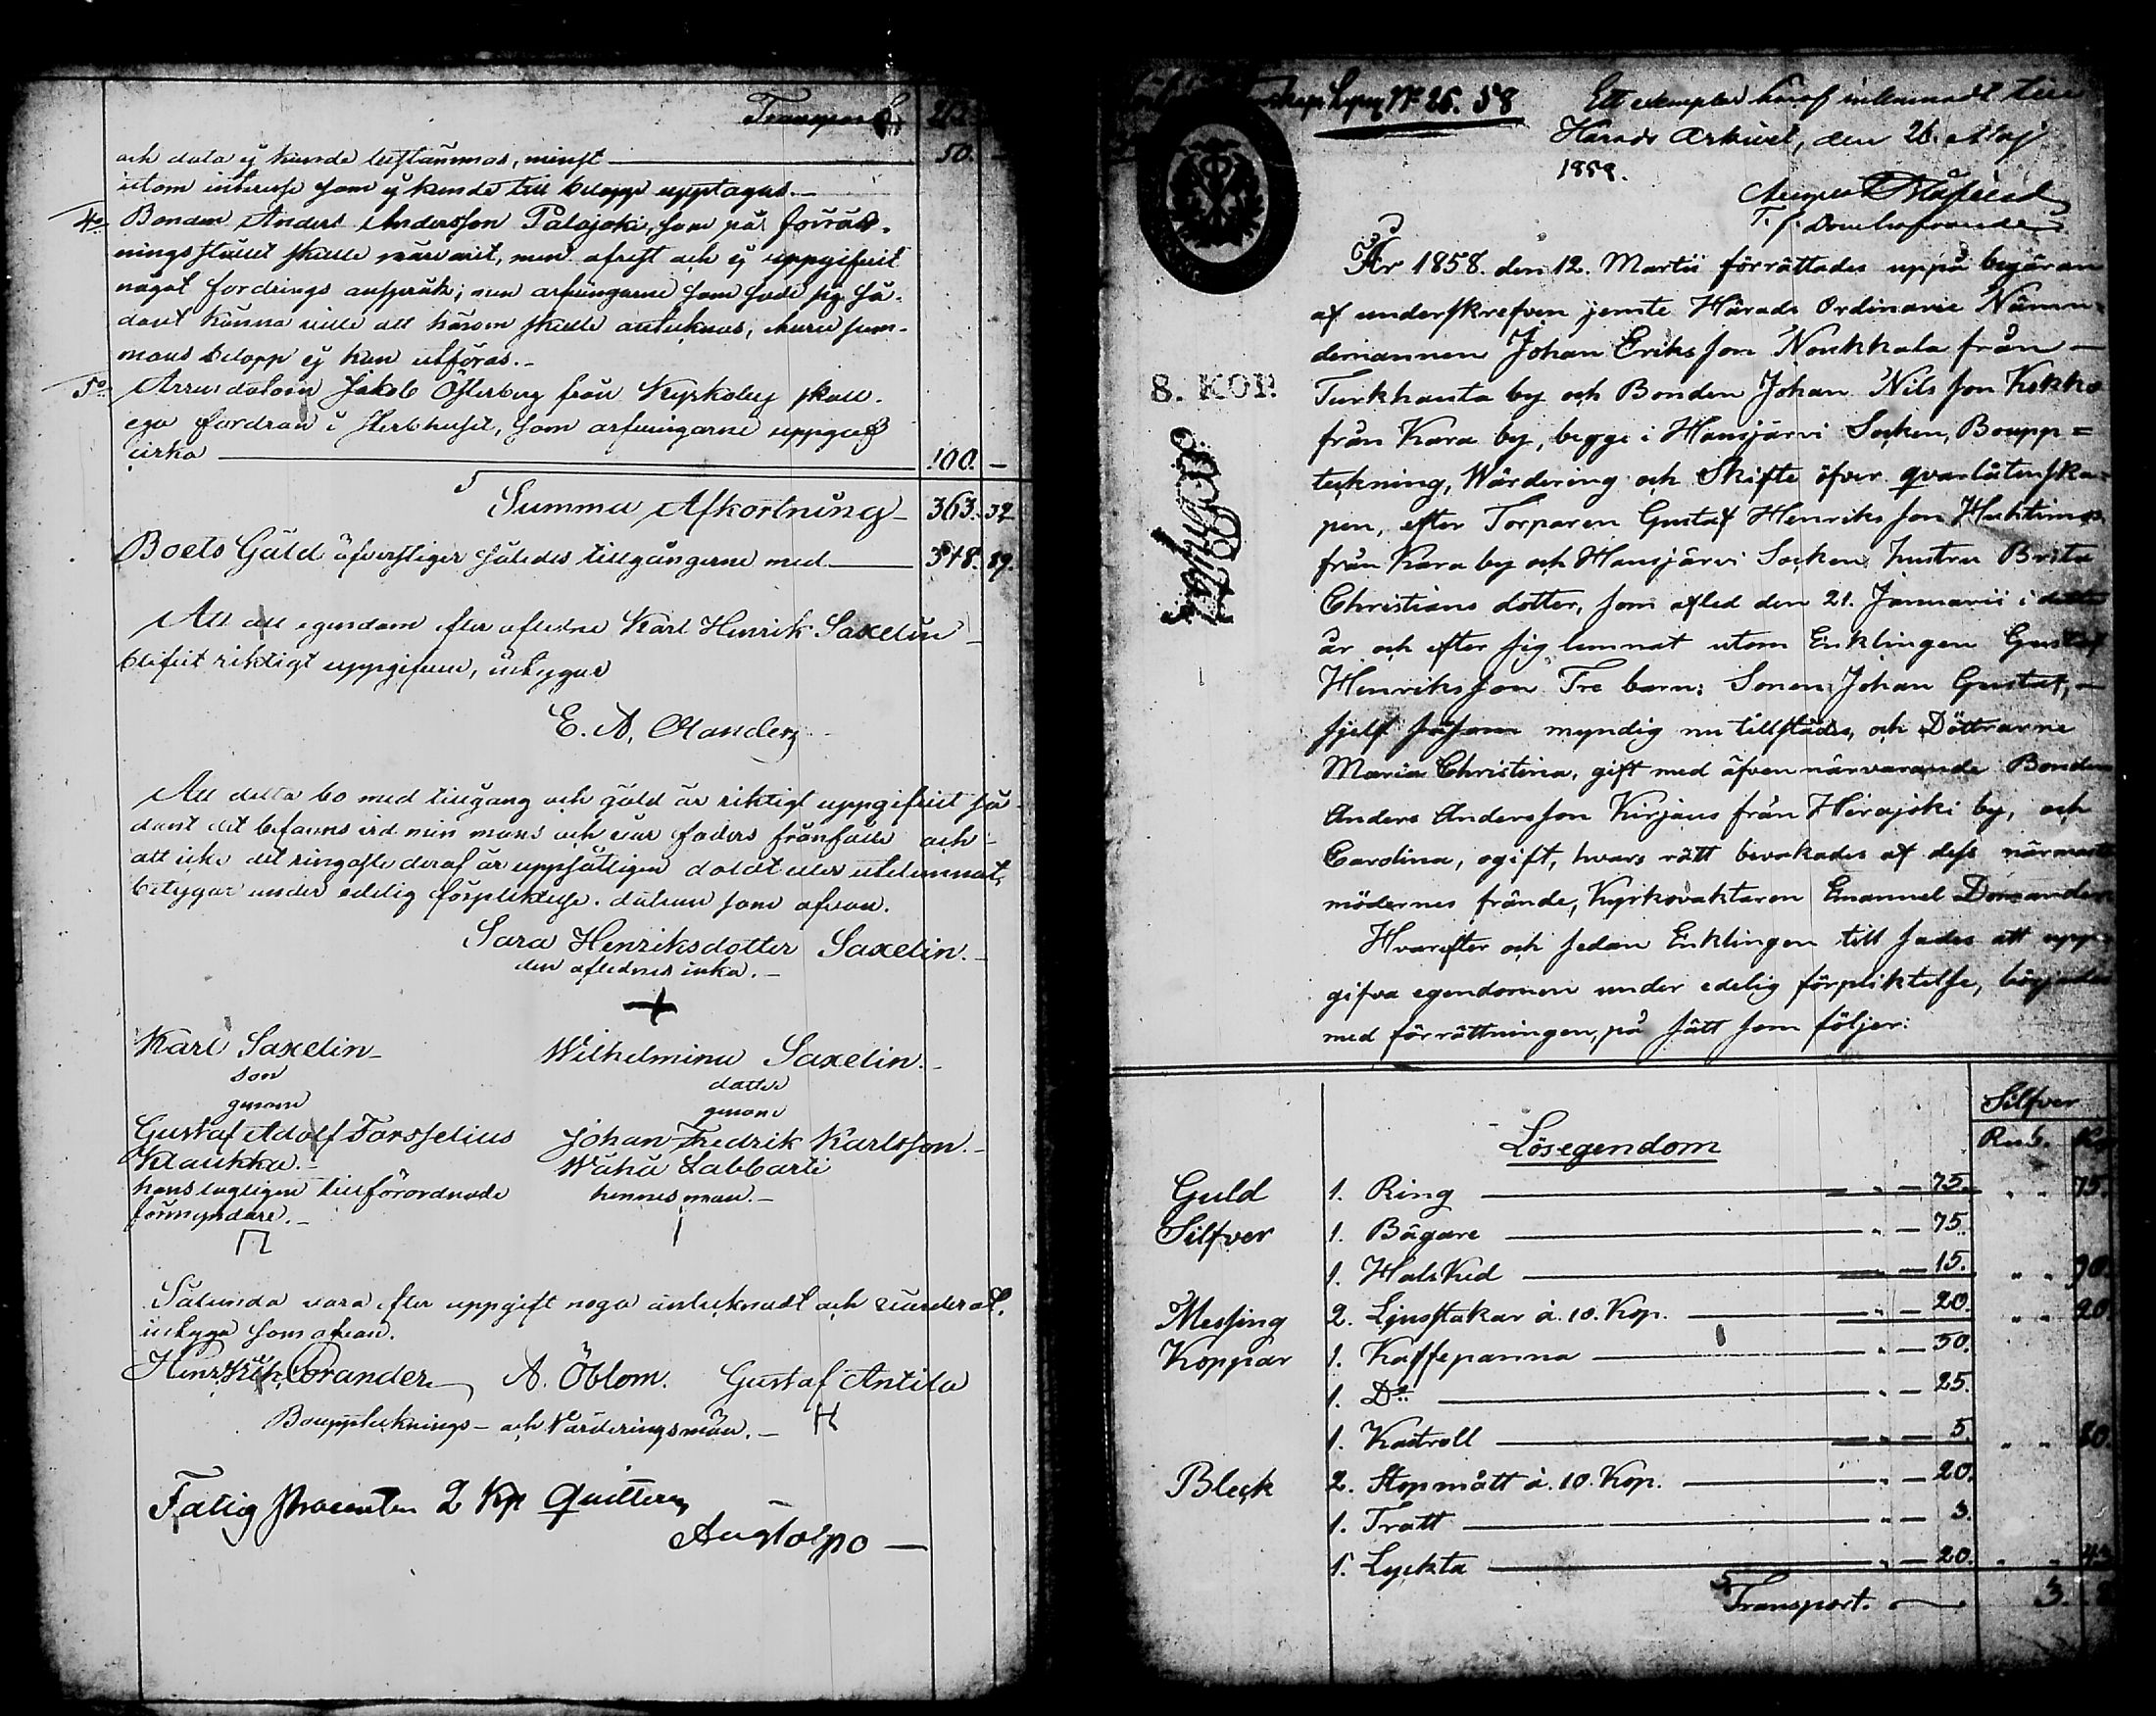 Transport
och data ej kunde bestämmas, minst 50. –
utom interesse som ej kunde till belopp upptagas. –
4o Bonden Anders Andersson Palojoki, som på förrätt-
ningsstället skulle närvarit, men afrest och ej uppgifvit
något fordrings anspråk; men arfvingarne som sade sig så-
dant kunna skulle antecknas, hvars sum-
mans belopp ej kan utföras. –
5o Arrendatorn Jakob Österberg från Kyrkoby skall
ega fordran i Sterbhuset, som arfvingarne uppgaf
cirka 100. –
Summa Afkortning – 363. 32
Boets Gäld öfverstiger således tillgångarne med 348. 89.
Att all egendom efter aflidne Karl Henrik Saxelin
blifvit riktigt uppgifven, intygar
E. A. Olander
Att detta bo med tillgång och gäld är riktigt uppgifvit så-
dant det befanns vid min mans och vår faders frånfälle och
att icke det ringaste deraf är uppsåtligen doldt eller utelemnat,
betygar under edelig förpliktelse. datum som ofvan.
Sara Henriksdotter Saxelin. –
den aflidnes enka. –
Karl Saxelin – Wilhelmina Saxelin. –
son dotter
genom genom
Gustaf Adolf Forsselius Johan Fredrik Karlsson. –
Klaukka. – Wähä Labbarti
hans lagligen tillförordnade hennes man. –
förmyndare. –
Sålunda vara efter uppgift noga antecknadt och värderat,
intyga som ofvan.
Henrik Corander A. Öblom. Gustaf Antila
Bouppteknings – och Värderingsmän. –
Fattig procenten 2 Kop Quitteras
No 26. 58
Ett exemplar häraf inlemnadt till
Härads Arkivet, den 26. Maj
1858.
T. f. Domhafvande
År 1858 den 12. Martii förrättades uppå begäran
af underskrefven jemte Härads Ordinarie Nämn-
demannen Johan Eriksson Noukkala från –
8. KOP. Turkhauta by och Bonden Johan Nilsson Kekko
från Kara by, begge i Hausjärvi Socken, Boupp=
teckning, Wärdering och Skifte öfver qvarlåtenska-
pen, efter Torparen Gustaf Henriksson Huhtimos
från Kara by och Hausjärvi Socken hustru Brita
Christians dotter, som afled den 21. Januarii i detta
år och efter sig lemnat utom Enklingen Gustaf
Henriksson Tre barn: Sonen Johan Gustaf, –
sjelf såsom myndig nu tillstädes, och Döttrarne
Maria Christina, gift med äfven närvarande Bonden
Anders Andersson Kirjaus från Hirajoki by, och
Carolina, ogift, hvars rätt bevakades af dess närmaste
mödernes frände, Kyrkovaktaren Emanuel Domander
Hvarefter och sedan Enklingen till sades att upp-
gifva egendomen under edelig förpliktelse, börjades
med förrättningen, på sätt som följer:
Silfver
Lösegendom Rub. Kop
Guld 1. Ring " – 75. " " 75.
Silfver 1. Bägare " – 75.
1. Halsked " – 15. " " 90.
Messing 2. Ljusstakar à 10. Kop. " – 20. " " 20.
Koppar 1. Kaffepanna " – 50.
1. Do " – 25.
1. Kastroll " – 5. " " 80.
Bleck 2. Stopmått à 10. Kop. " – 20.
1. Tratt " – 3.
1. Lyckta " – 20. " " 43
Transport. 3.